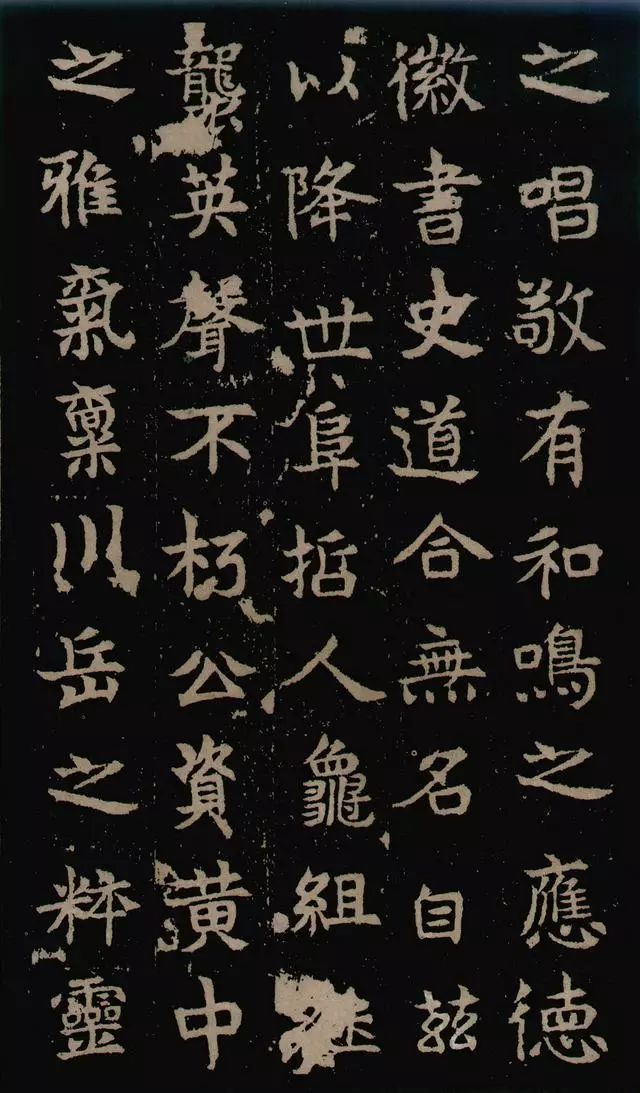 之唱敬有和鳴之應德
徽書史道合無名自兹
以降世阜哲人龜組
襲英聲不朽公資黄中
之雅氣稟川岳之粹靈